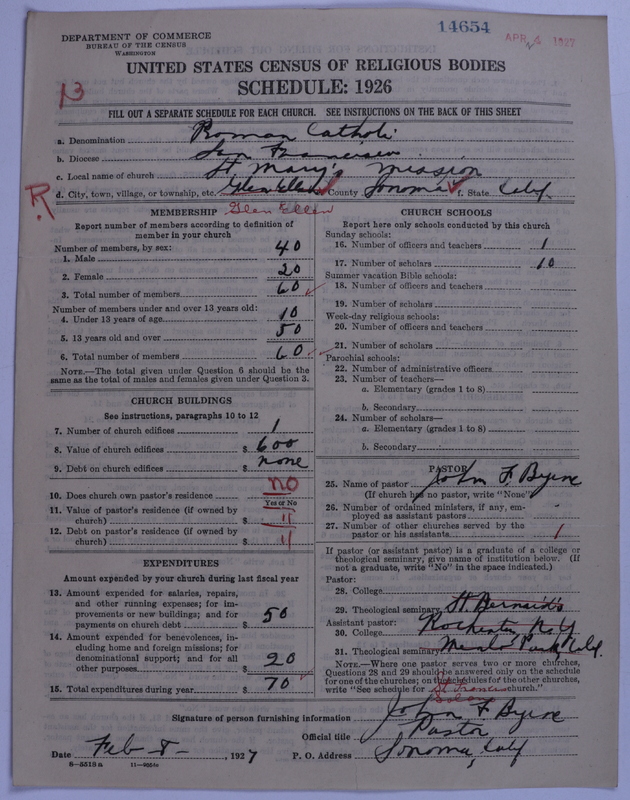 14654
APR 4 1927
DEPARTMENT OF COMMERCE
BUREAU OF THE CENSUS
WASHINGTON
UNITED STATES CENSUS OF RELIGIOUS BODIES
SCHEDULE: 1926
13
FILL OUT A SEPARATE SCHEDULE FOR EACH CHURCH. SEE INSTRUCTIONS ON THE BACK OF THIS SHEET
a. Denomination Roman Catholic
b. Diocese San Francisco
c. Local name of church St Mary's Mission
R
d. City, town, village, or township, etc. Glen Ellen County Sonoma f. State Calif.
MEMBERSHIP Glen Ellen
Report number of members according to definition of
member in your church
Number of members, by sex:
1. Male 40
2. Female 20
3. Total number of members 60
Number of members under and over 13 years old:
4. Under 13 years of age 10
5. 13 years old and over 50
6. Total number of members 60
NOTE.—The total given under Question 6 should be the
same as the total of males and females given under Question 3.
CHURCH BUILDINGS
See instructions, paragraphs 10 to 12
7. Number of church edifices 1
8. Value of church edifices $ 600
9. Debt on church edifices $ none
10. Does church own pastor's residence no
Yes or No
11. Value of pastor's residence (if owned by
church) $ "
12. Debt on pastor's residence (if owned by
church) $ "
EXPENDITURES
Amount expended by your church during last fiscal year
13. Amount expended for salaries, repairs,
and other running expenses; for im-
provements or new buildings; and for
payments on church debt $ 50
14. Amount expended for benevolences, in-
cluding home and foreign missions; for
denominational support; and for all
other purposes $ 20
15. Total expenditures during year $ 70
CHURCH SCHOOLS
Report here only schools conducted by this church
Sunday schools:
16. Number of officers and teachers 1
17. Number of scholars 10
Summer vacation Bible schools:
18. Number of officers and teachers
19. Number of scholars
Week-day religious schools:
20. Number of officers and teachers
21. Number of scholars
Parochial schools:
22. Number of administrative officers
23. Number of teachers—
a. Elementary (grades 1 to 8)
b. Secondary
24. Number of scholars—
a. Elementary (grades 1 to 8)
b. Secondary
PASTOR
25. Name of pastor John F. Byrne
(If church has no pastor, write "None")
26. Number of ordained ministers, if any, em-
ployed as assistant pastors
27. Number of other churches served by the
pastor or his assistants 1
If pastor (or assistant pastor) is a graduate of a college or
theological seminary, give name of institution below. (If
not a graduate, write "No" in the space indicated.)
Pastor:
28. College
29. Theological seminary St Bernard's
Assistant pastor:
30. College Rochester N.Y
31. Theological seminary Menlo Park Calif.
NOTE.—Where one pastor serves two or more churches,
Questions 28 and 29 should be answered only on the schedule
for one of the churches; on the schedules for the other churches,
write "See schedule for St Francis Solano church."
Signature of person furnishing information John F Byrne
Official title Pastor
Date Feb 8— , 1927 P. O. Address Sonoma, Calif
8—5519 a